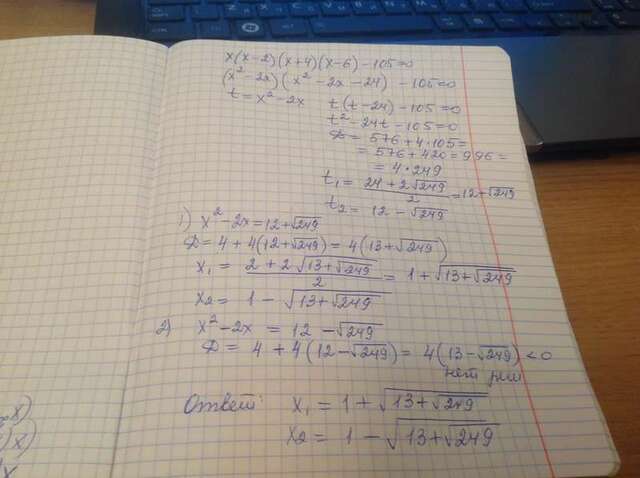 x(x-2)(x+4)(x-6)-105=0
(x²-2x)(x²-2x-24)-105=0
t=x²-2x t(t-24)-105=0
t²-24t-105=0
D=576+4·105=
=576+420=996=
=4·249
t₁=(24+2√249)/2=12+√249
t₂=12-√249
1) x²-2x=12+√249
D=4+4(12+√249)=4(13+√249)
x₁=(2+2√(13+√249))/2=1+√(13+√249)
x₂=1-√(13+√249)
2) x²-2x=12-√249
D=4+4(12-√249)=4(13-√249)<0
нет реш
Ответ: x₁=1+√(13+√249)
x₂=1-√(13+√249)